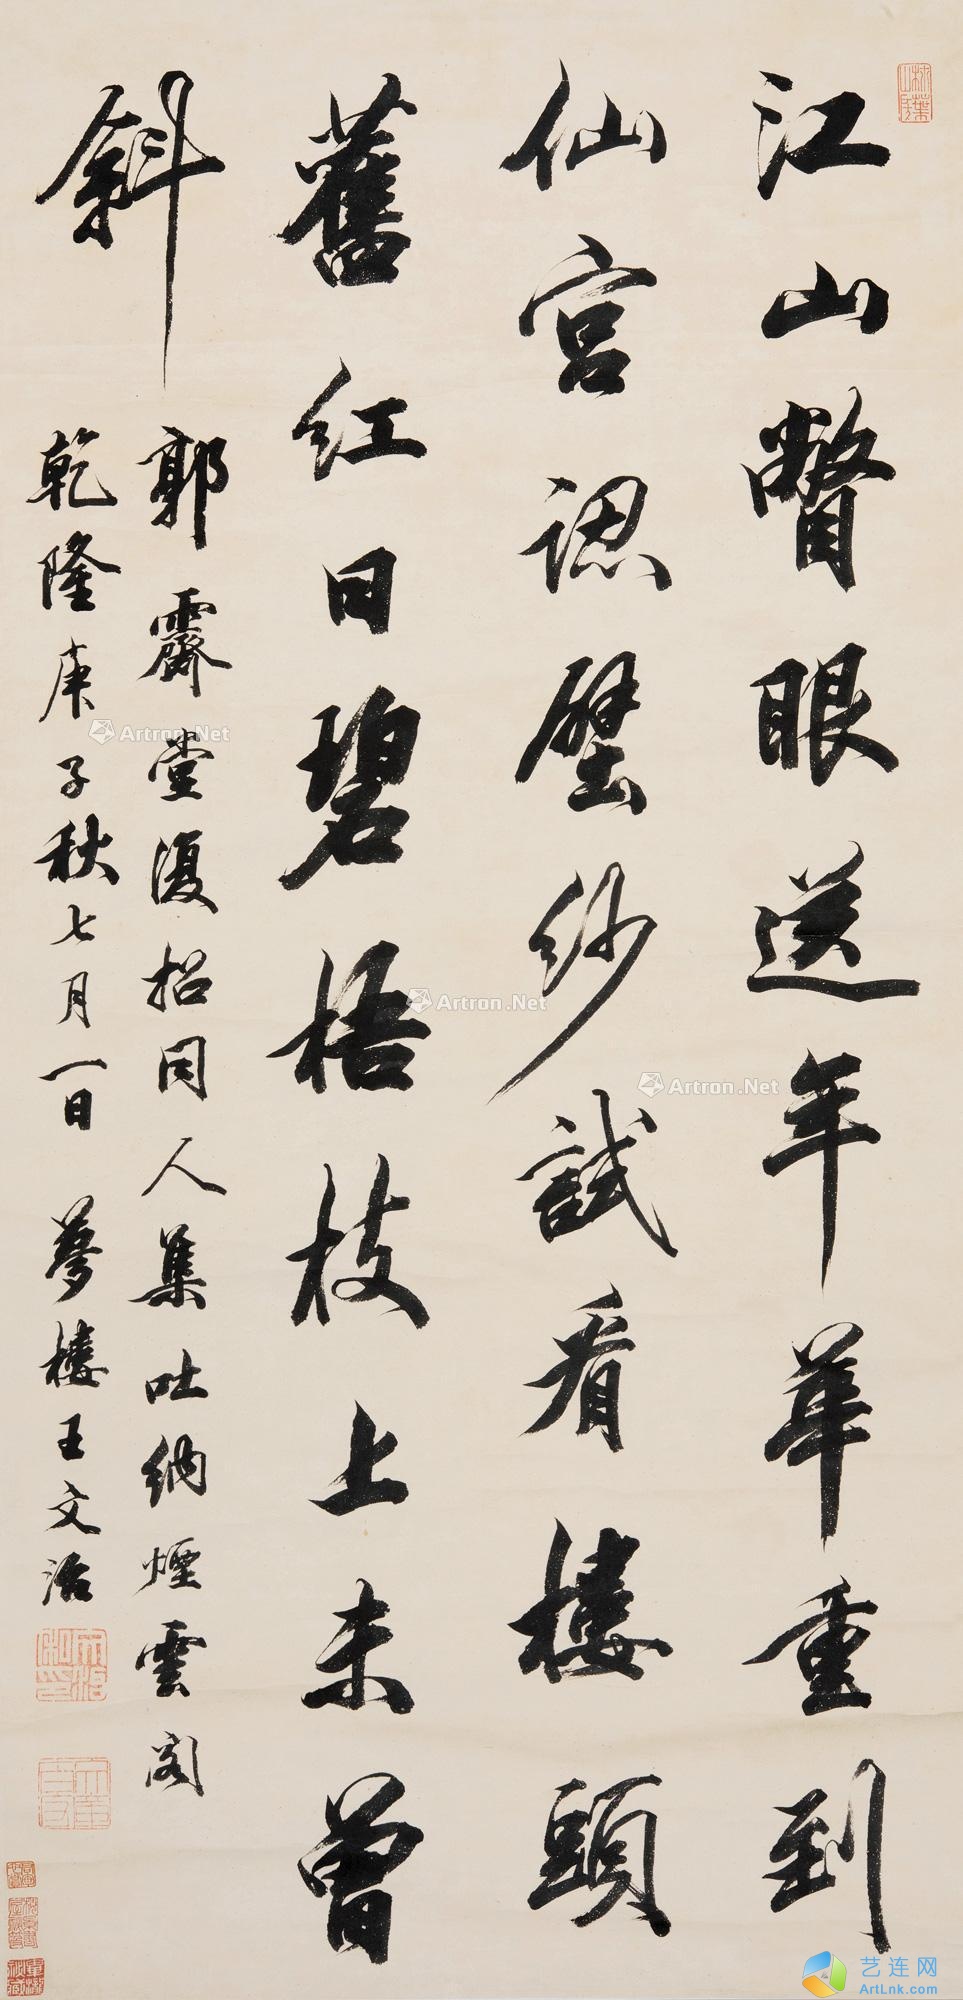 江山瞥眼送年華重到
仙宮認壁紗試看樓頭
舊紅日碧梧枝上未曾
斜
郭霽堂復招同人集吐納煙雲閣
乾隆庚子秋七月一日 夢樓王文治
Artron.Net
Artron.Net
Artron.Net
艺连网
ArtLnk.com